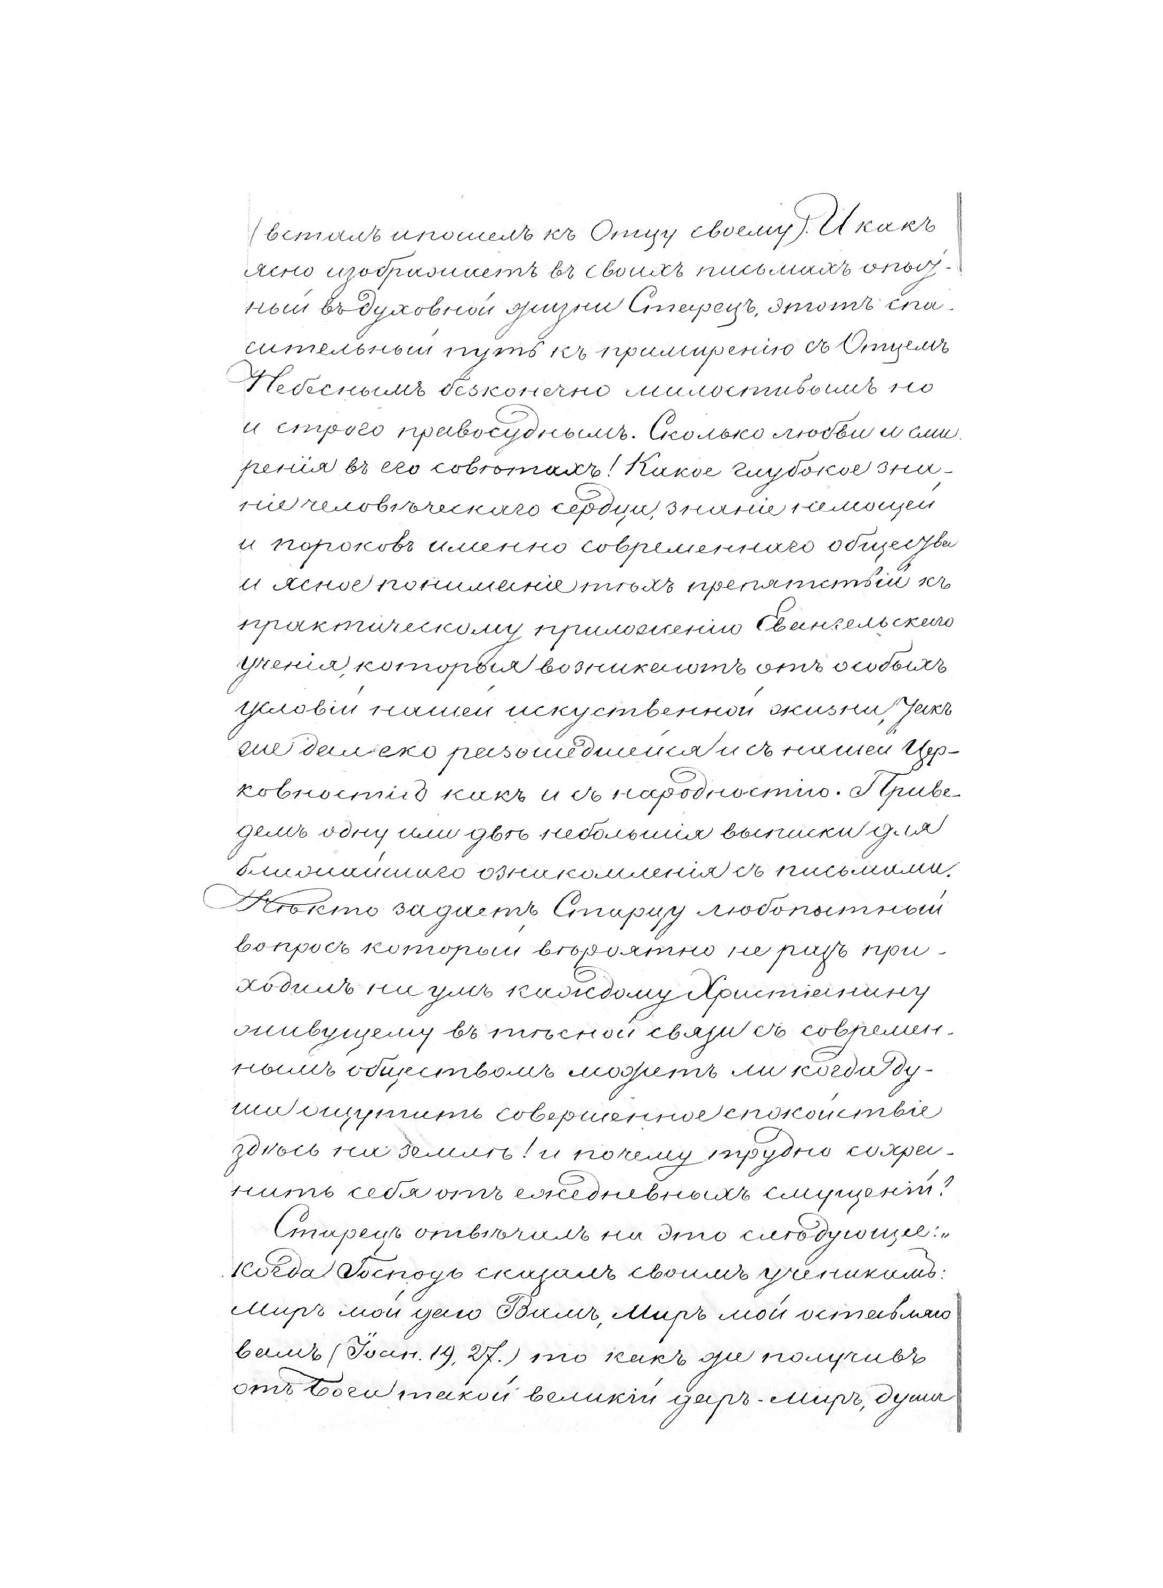 (всталъ и пошелъ къ Отцу своему). И какъ
ясно изображаетъ въ своихъ письмахъ опыт-
ный въ духовной жизни Старецъ, этотъ спа-
сительный путь къ примиренію съ Отцемъ
Небеснымъ безконечно милостивымъ но
и строго правосуднымъ. Сколько любви и сми-
ренія въ его совѣтахъ! Какое глубокое зна-
ніе человѣческаго сердца, знаніе немощей
и пороковъ именно современнаго общества
и ясное пониманіе тѣхъ препятствій къ
практическому приложенію Евангельскаго
ученія, которыя возникаютъ отъ особыхъ
условій нашей искуственной жизни, такъ
же далеко разошедшейся и съ нашей Цер-
ковностію какъ и съ народностію. Приве-
демъ одну или двѣ небольшія выписки для
ближайшаго ознакомленія съ письмами.
Нѣкто задаетъ Старцу любопытный
вопросъ который вѣроятно не разъ при-
ходилъ на умъ каждому Христіанину
живущему въ тѣсной связи съ современ-
нымъ обществомъ можетъ ли когда ду-
ша ощутить совершенное спокойствіе
здѣсь на землѣ! и почему трудно сохра-
нить себя отъ ежедневныхъ смущеній?
Старецъ отвѣчалъ на это слѣдующее: „
когда Господь сказалъ своимъ ученикамъ:
Миръ мой даю Вамъ, Миръ мой оставляю
вамъ (Іоан. 19, 27.) то какъ же получивъ
отъ Бога такой великій даръ-миръ, душа